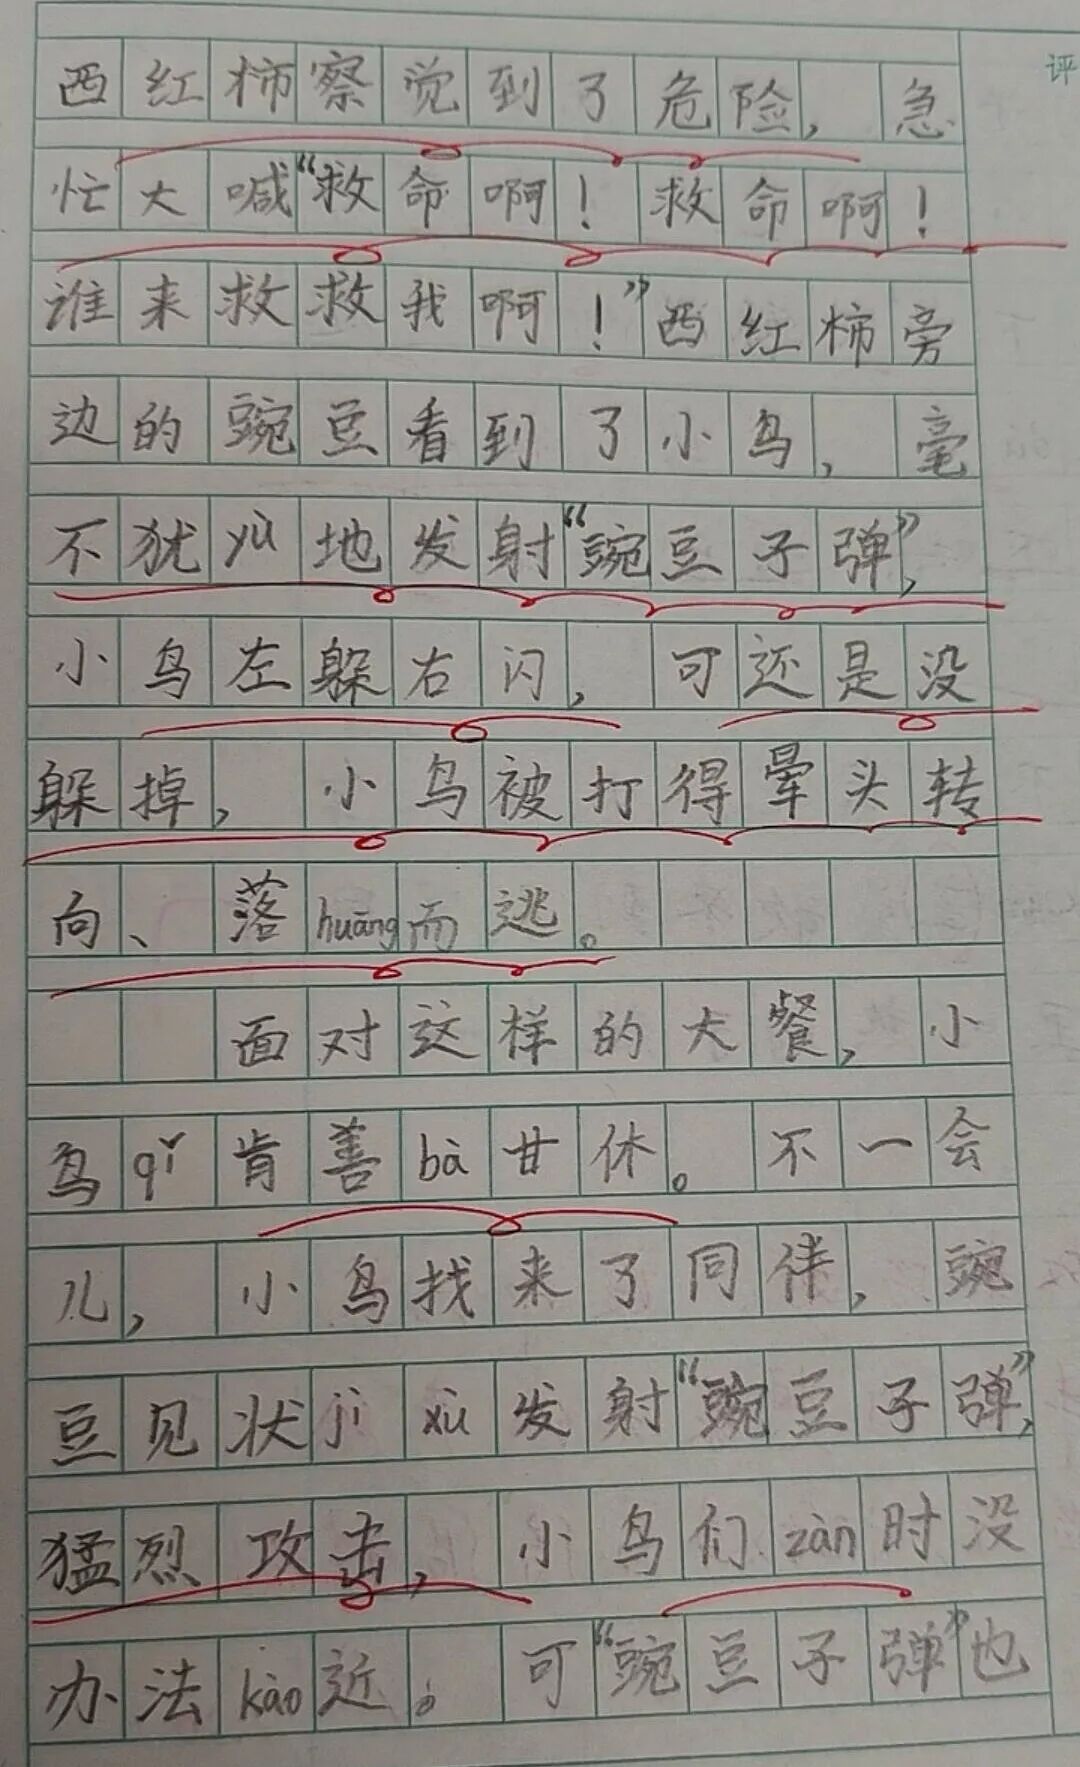 评
西红柿察觉到了危险，急
忙大喊“救命啊！救命啊！
谁来救救我啊！”西红柿旁
边的豌豆看到了小鸟，毫
不犹yù地发射“豌豆子弹”，
小鸟左躲右闪，可还是没
躲掉，小鸟被打得晕头转
向、落huāng而逃。
面对这样的大餐，小
鸟qǐ肯善bà甘休。不一会
儿，小鸟找来了同伴，豌
豆见状jì xù发射“豌豆子弹”，
猛烈攻击，小鸟们zàn时没
办法kào近。可“豌豆子弹”也